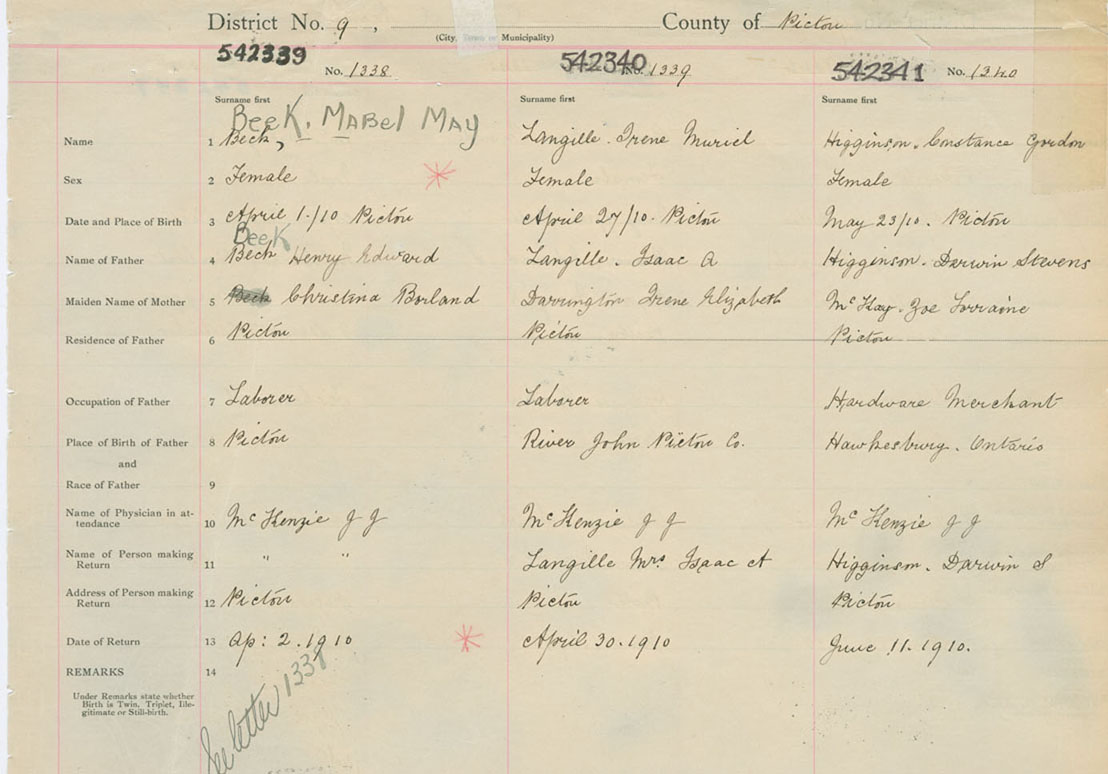 District No. 9, County of Pictou
(City, Town or Municipality)
542339 542340 542341
No. 1338 No. 1339 No. 1340
Surname first Surname first Surname first
BeeK, MABel MAY
Name 1 Beck, Langille. Irene Muriel Higginson. Constance Gordon
Sex 2 Female Female Female
Date and Place of Birth 3 April 1-/10 Pictou April 27/10. Pictou May 23/10. Pictou
BeeK
Name of Father 4 Beck Henry Edward Langille. Isaac A Higginson. Darwin Stevens
Maiden Name of Mother 5 Beck Christina Borland Darrington Irene Elizabeth McKay. Zoe Lorraine
Residence of Father 6 Pictou Pictou Pictou
Occupation of Father 7 Laborer Laborer Hardware Merchant
Place of Birth of Father 8 Pictou River John Pictou Co. Hawkesburg. Ontario
and
Race of Father 9
Name of Physician in at- 10 McKenzie J J McKenzie J J McKenzie J J
tendance
Name of Person making 11 " " Langille Mrs. Isaac A Higginson. Darwin S
Return
Address of Person making 12 Pictou Pictou Pictou
Return
Date of Return 13 Ap: 2. 1910 April 30. 1910 June 11. 1910.
REMARKS 14
Under Remarks state whether
Birth is Twin, Triplet, Ille-
gitimate or Still-birth.
See letter 1337